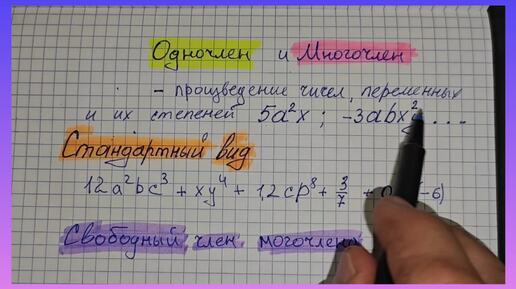 Одночлен и Многочлен
– произведение чисел, переменных
и их степеней 5a²x ; -3abx² ...
Стандартный вид
12a²bc³ + xy⁴ + 1,2cp⁸ + 3/7 + -6)
Свободный член могочлена